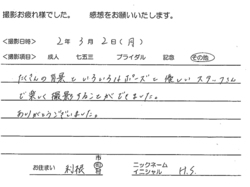 撮影お疲れ様でした。　感想をお願いいたします。
<撮影日時>　2年3月2日(月)
<撮影項目>　成人　七五三　ブライダル　記念　その他
たくさんの背景といろいろなポーズと優しいスタッフさん
で楽しく撮影することができました。
ありがとうございました。
お住まい　利根　市　町　ニックネーム　イニシャル　H.S.